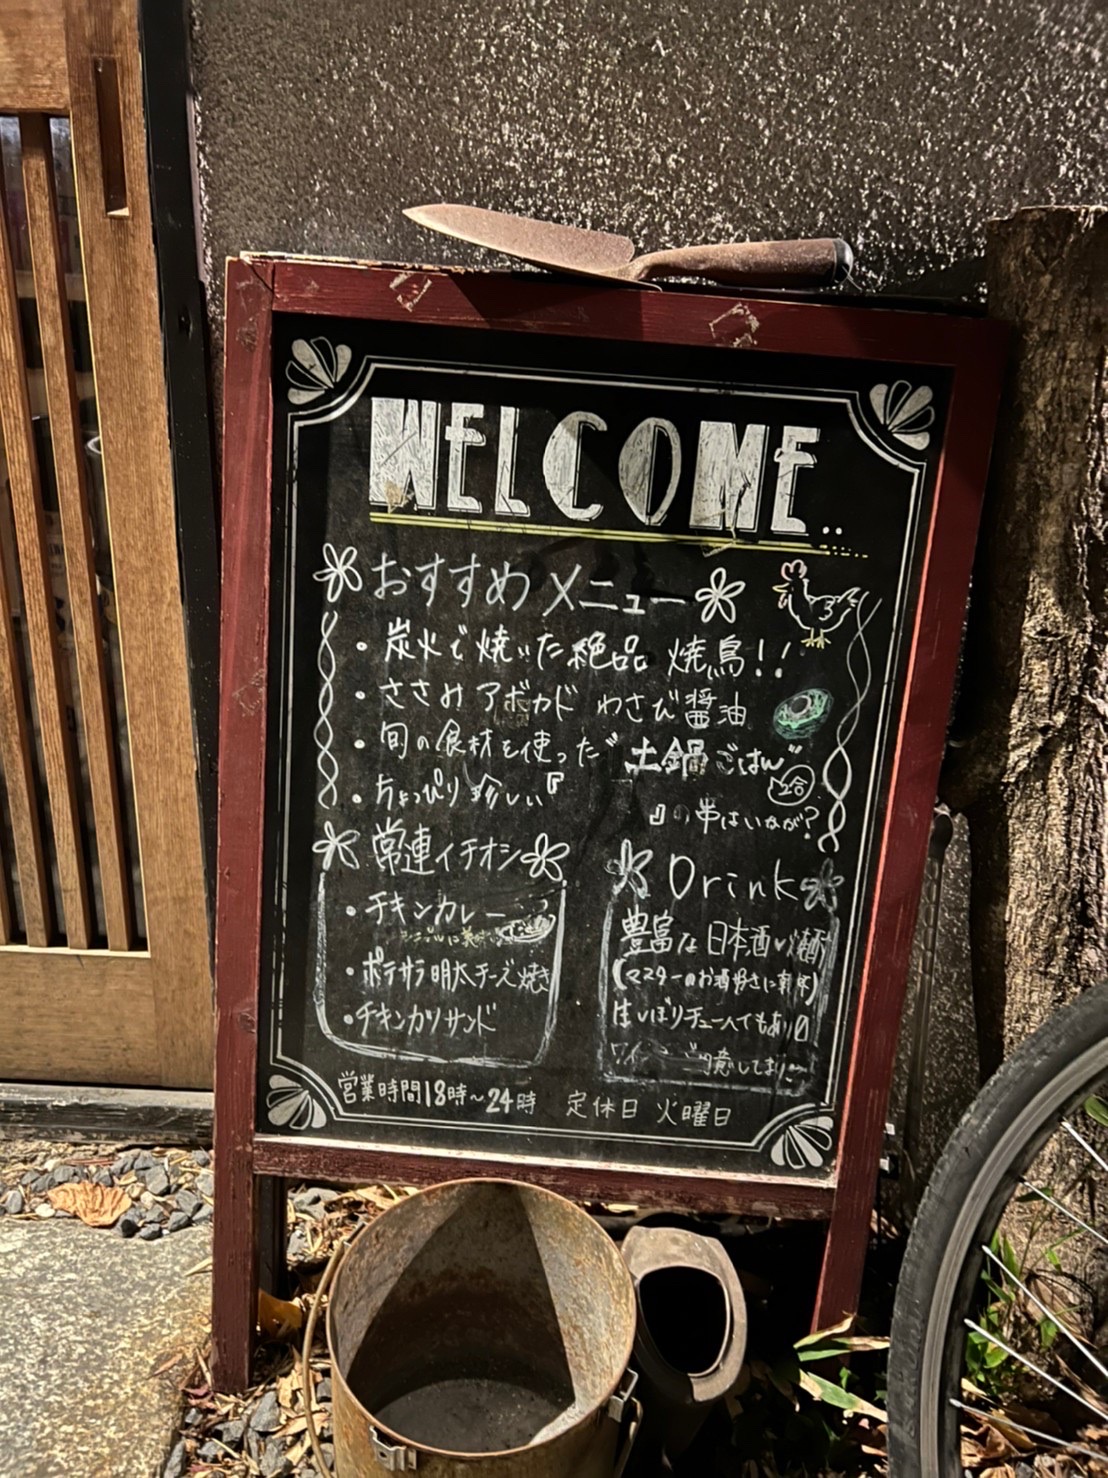 WELCOME..
おすすめメニュー
・炭火で焼いた絶品 焼鳥!!
・ささみアボカド わさび醤油
・旬の食材を使った"土鍋ごはん"
・ちょっぴり珍しい『
』の串はいかが?
常連イチオシ
・チキンカレー
・ポテサラ明太チーズ焼き
・チキンカツサンド
Drink
豊富な日本酒・焼酎
(マスターのお酒好きに
生しぼりチューハイもあり
営業時間18時~24時 定休日 火曜日